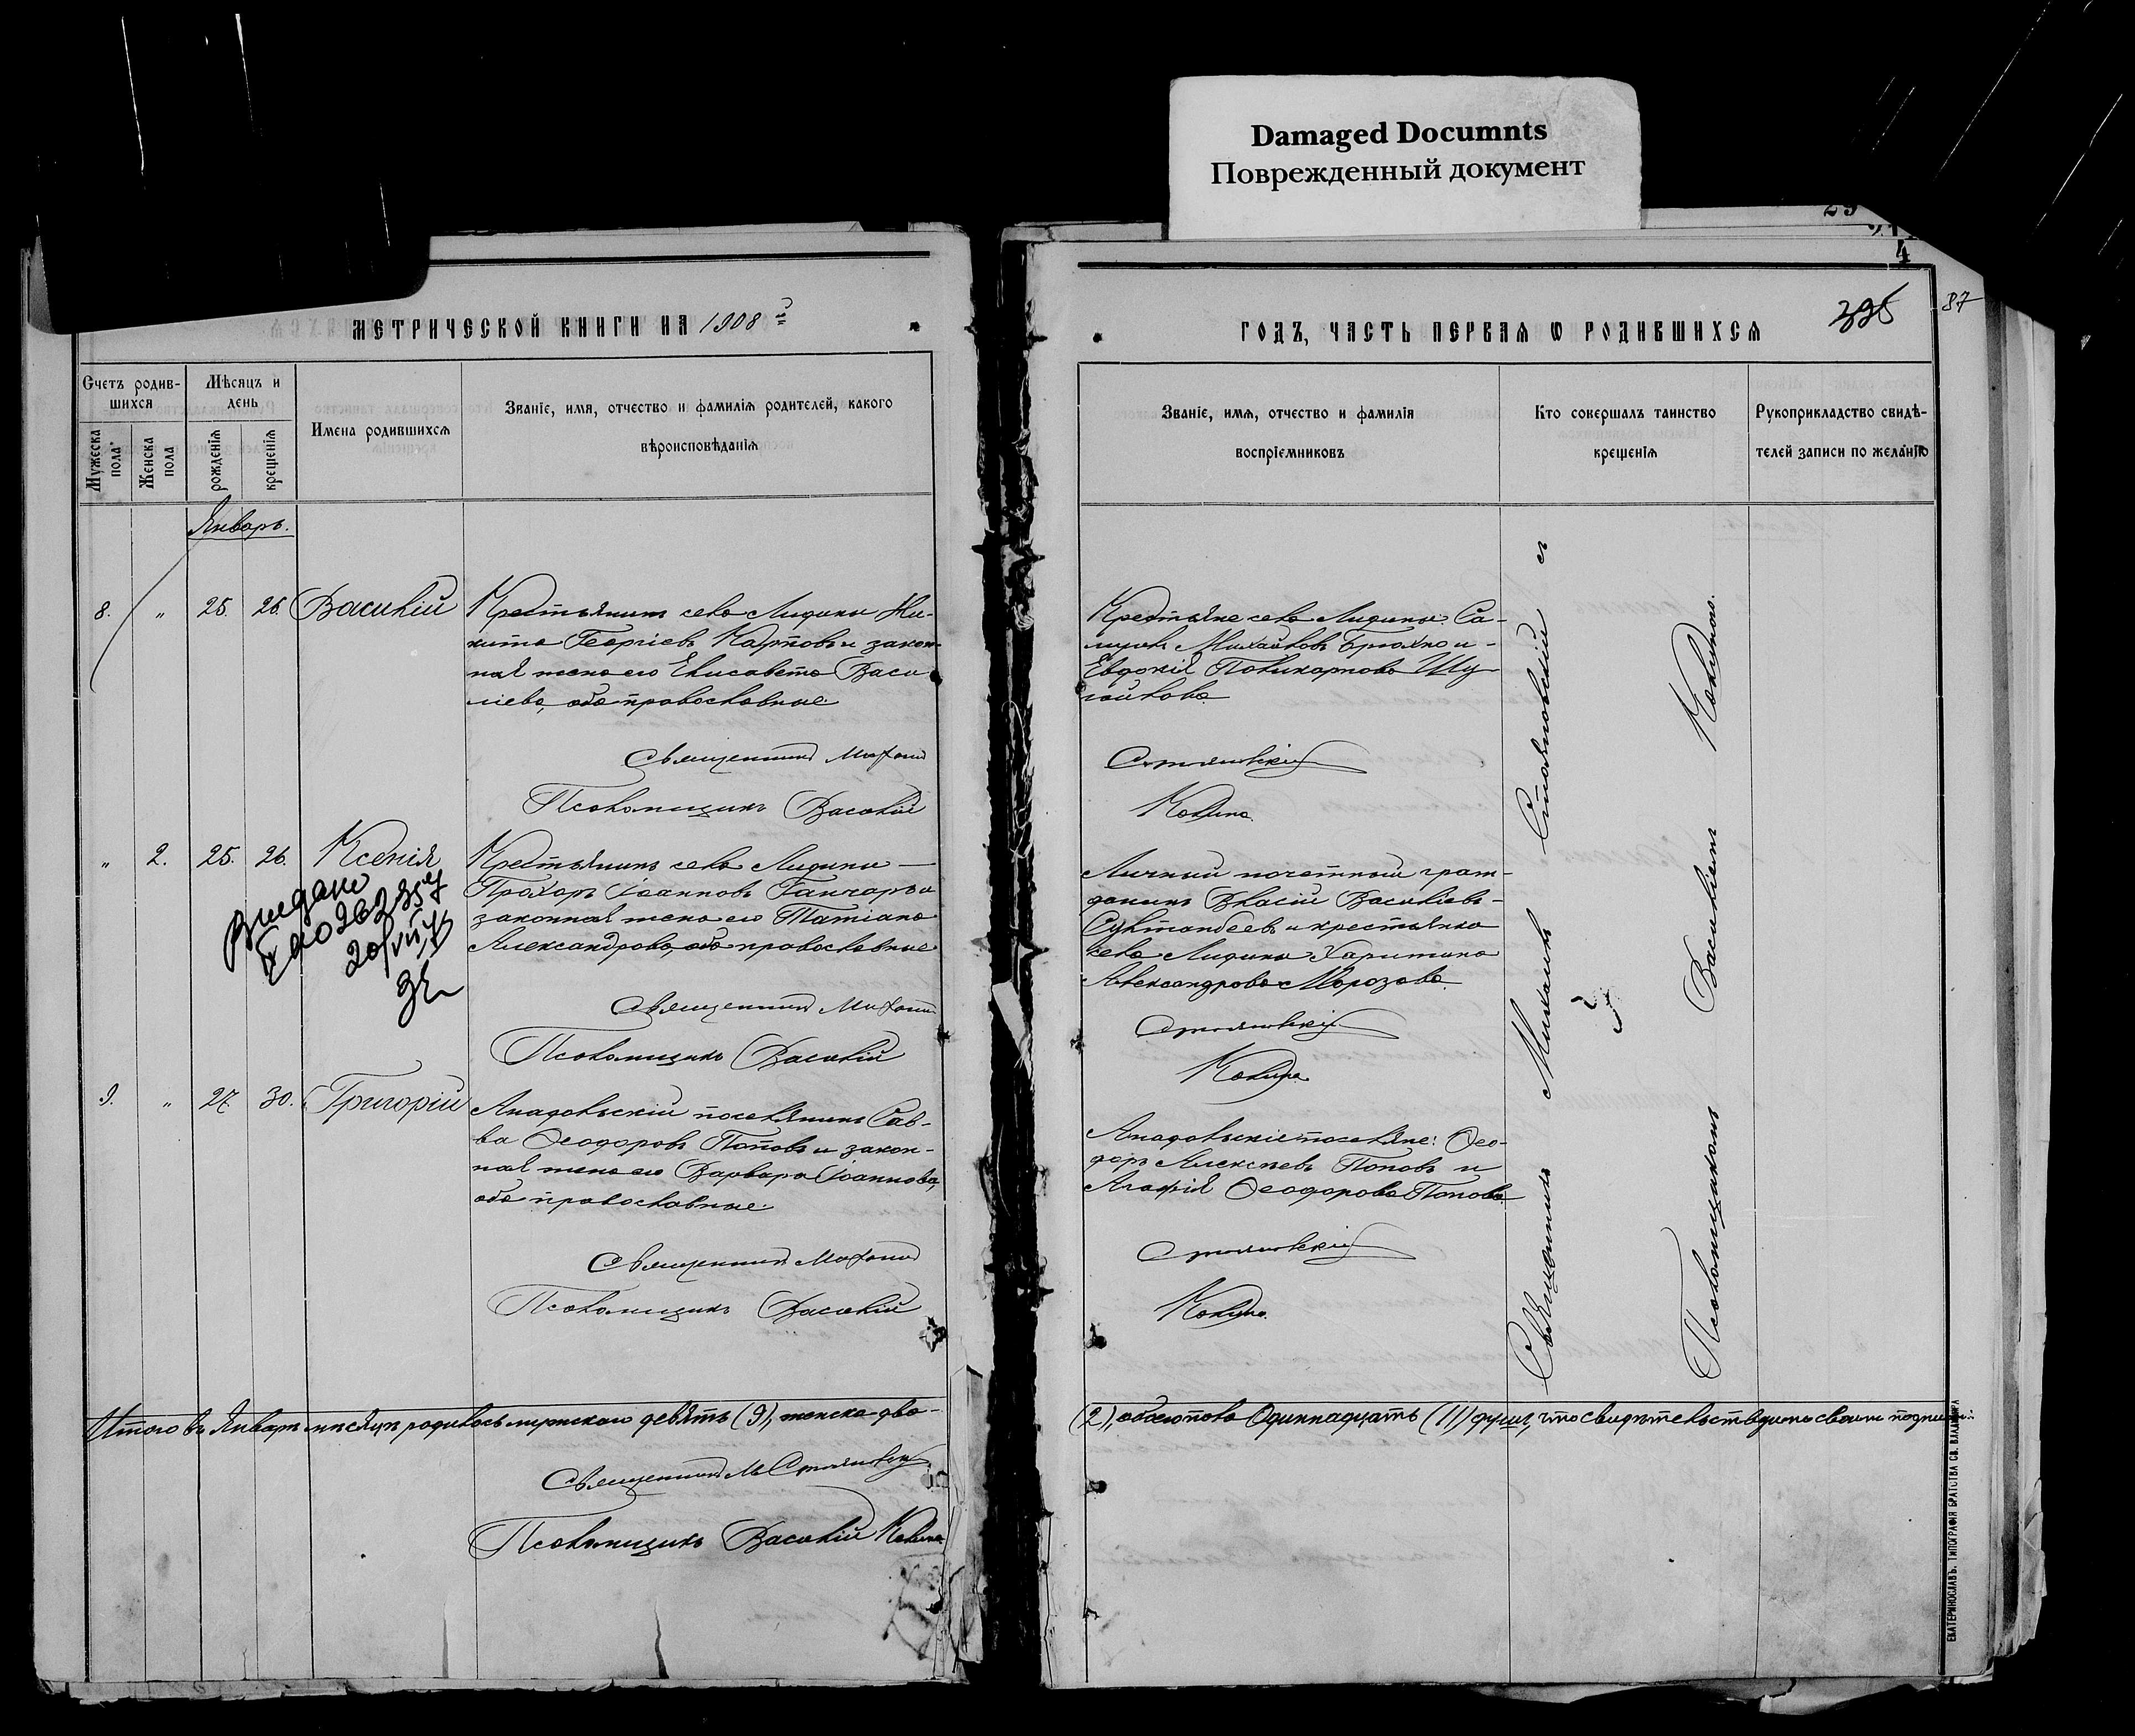 Damaged Documnts
Поврежденный документ
4
87
МЕТРИЧЕСКОЙ КНИГИ НА 1908 й
ГОДЪ, ЧАСТЬ ПЕРВАЯ Ѡ РОДИВШИХСЯ
Счетъ родив-
шихся
Мужеска
пола
Женска
пола
Мѣсяцъ и
день
рожденія
крещенія
Имена родившихся
Званіе, имя, отчество и фамилія родителей, какого
вѣроисповѣданія
Званіе, имя, отчество и фамилія
воспріемниковъ
Кто совершалъ таинство
крещенія
Рукоприкладство свидѣ-
телей записи по желанію
Январь.
8. " 25. 26. Василій
Крестьянинъ села Лидины Ни-
кита Георгіевъ Карповъ и закон-
ная жена его Елисавета Васи
ліева, оба православные.
Священникъ Михаилъ
Псаломщикъ Василій
Крестьяне села Лидины: Са-
муилъ Михайловъ Брюхно и
Евдокія Поликарпова Шу-
Стояновскій
Калина.
" 2. 25. 26. Ксенія
Выдано
20/VII
Крестьянинъ села Лидины
Прохоръ Іоанновъ Ганчаръ и
законная жена его Татіана
Александрова, оба православные
Священникъ Михаилъ
Псаломщикъ Василій
Личный почетный граж-
данинъ Власій Василіевъ
Султанбеевъ и крестьянка
села Лидины Харитина
Александрова Морозова.
Стояновскій
Калина.
9. " 27. 30. Григорій
Анадольскій поселянинъ Сав-
ва Ѳеодоровъ Поповъ и закон-
ная жена его Варвара Іоаннова,
оба православные.
Священникъ Михаилъ
Псаломщикъ Василій
Анадольскіе поселяне: Ѳео-
доръ Алексѣевъ Поповъ и
Агафія Ѳеодорова Попова.
Стояновскій
Калина.
Священникъ Михаилъ Стояновскій съ
Псаломщикомъ Василіемъ Калиною.
Итого въ Январѣ мѣсяцѣ родилось мужского девять (9), женска два-
(2), обоего пола Одиннадцать (11) душъ, что свидѣтельствуемъ своимъ подписомъ
Священникъ М. Стояновскій
Псаломщикъ Василій Калина
ЕКАТЕРИНОСЛАВЪ. ТИПОГРАФІЯ БРАТСТВА СВ. ВЛАДИМІРА